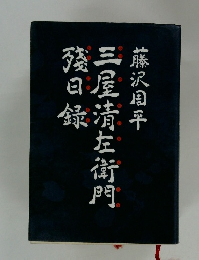 藤沢周平
三屋清左衛門
殘日録